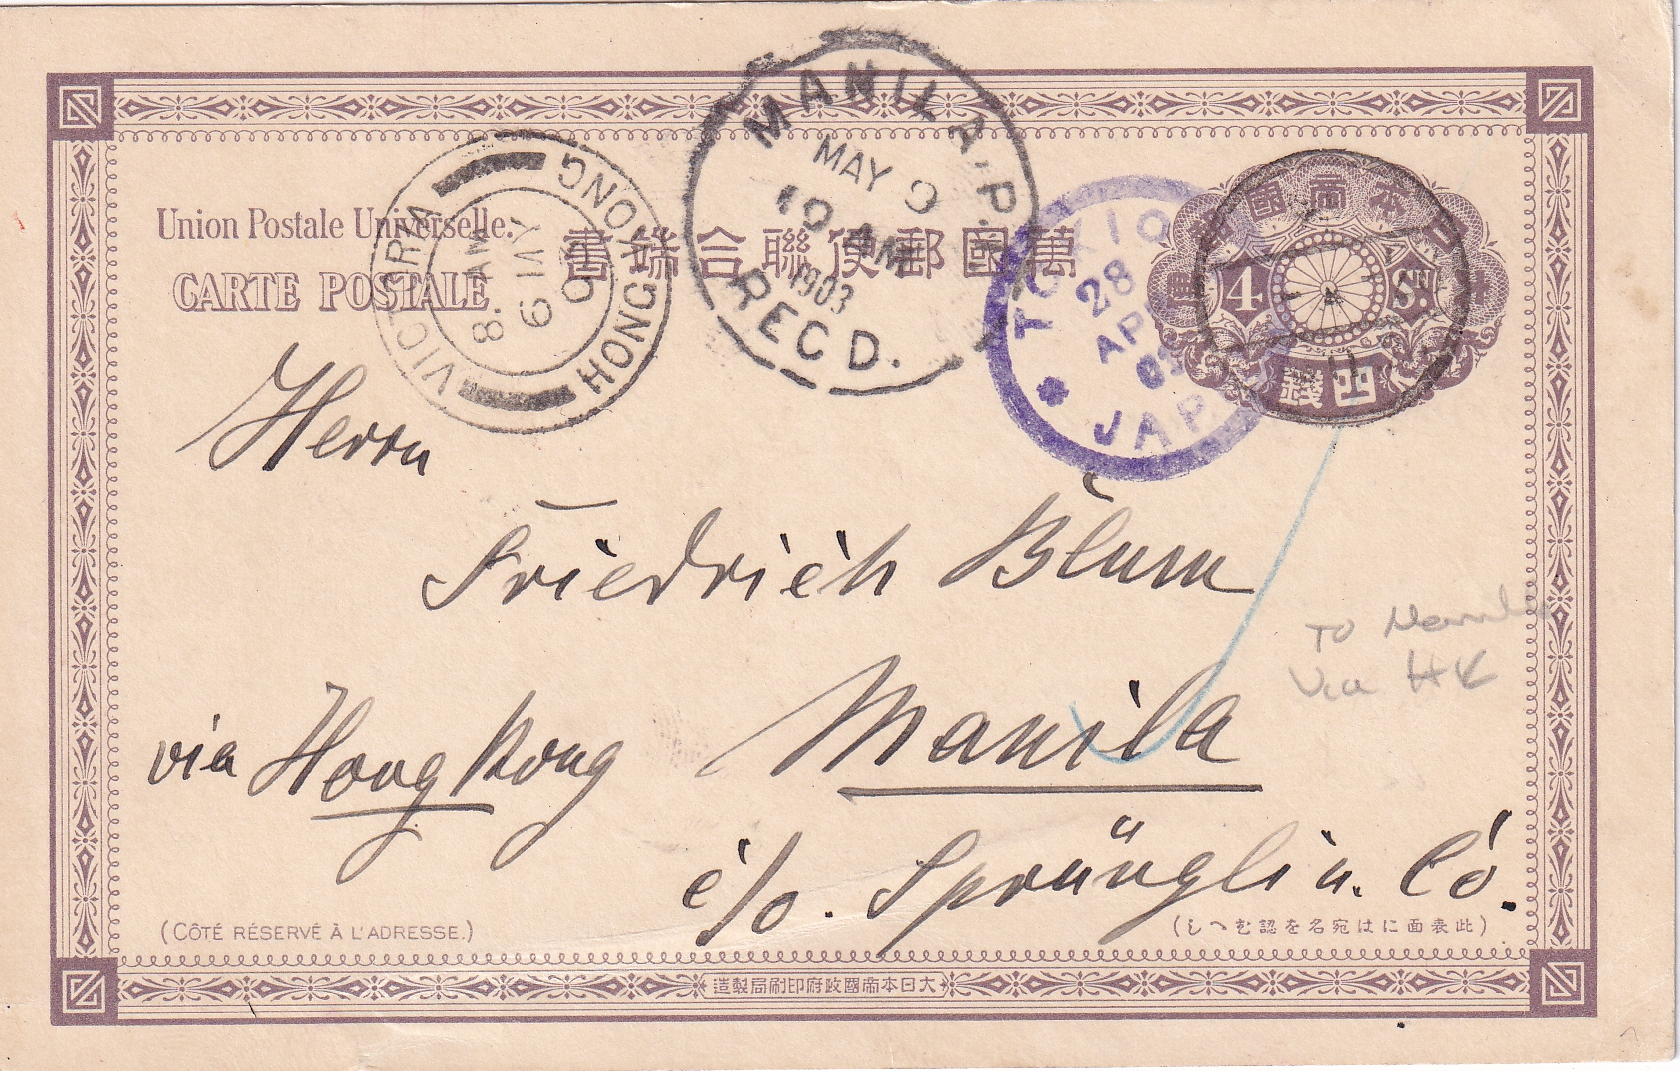 Union Postale Universelle.
CARTE POSTALE
萬國郵便聯合端書
VICTORIA HONG KONG
MANILA, P.I.
MAY 9
10 AM
1903
REC'D.
TOKIO
28
JAP
大日本帝國郵便
4 Sn
四錢
Herrn
Friedrich Blum
Manila
via Hongkong
c/o. Sprüngli u. Co.
To Manila
Via HK
(CÔTÉ RÉSERVÉ À L'ADRESSE.)
(此表面には宛名を認むへし)
大日本帝國政府印刷局製造